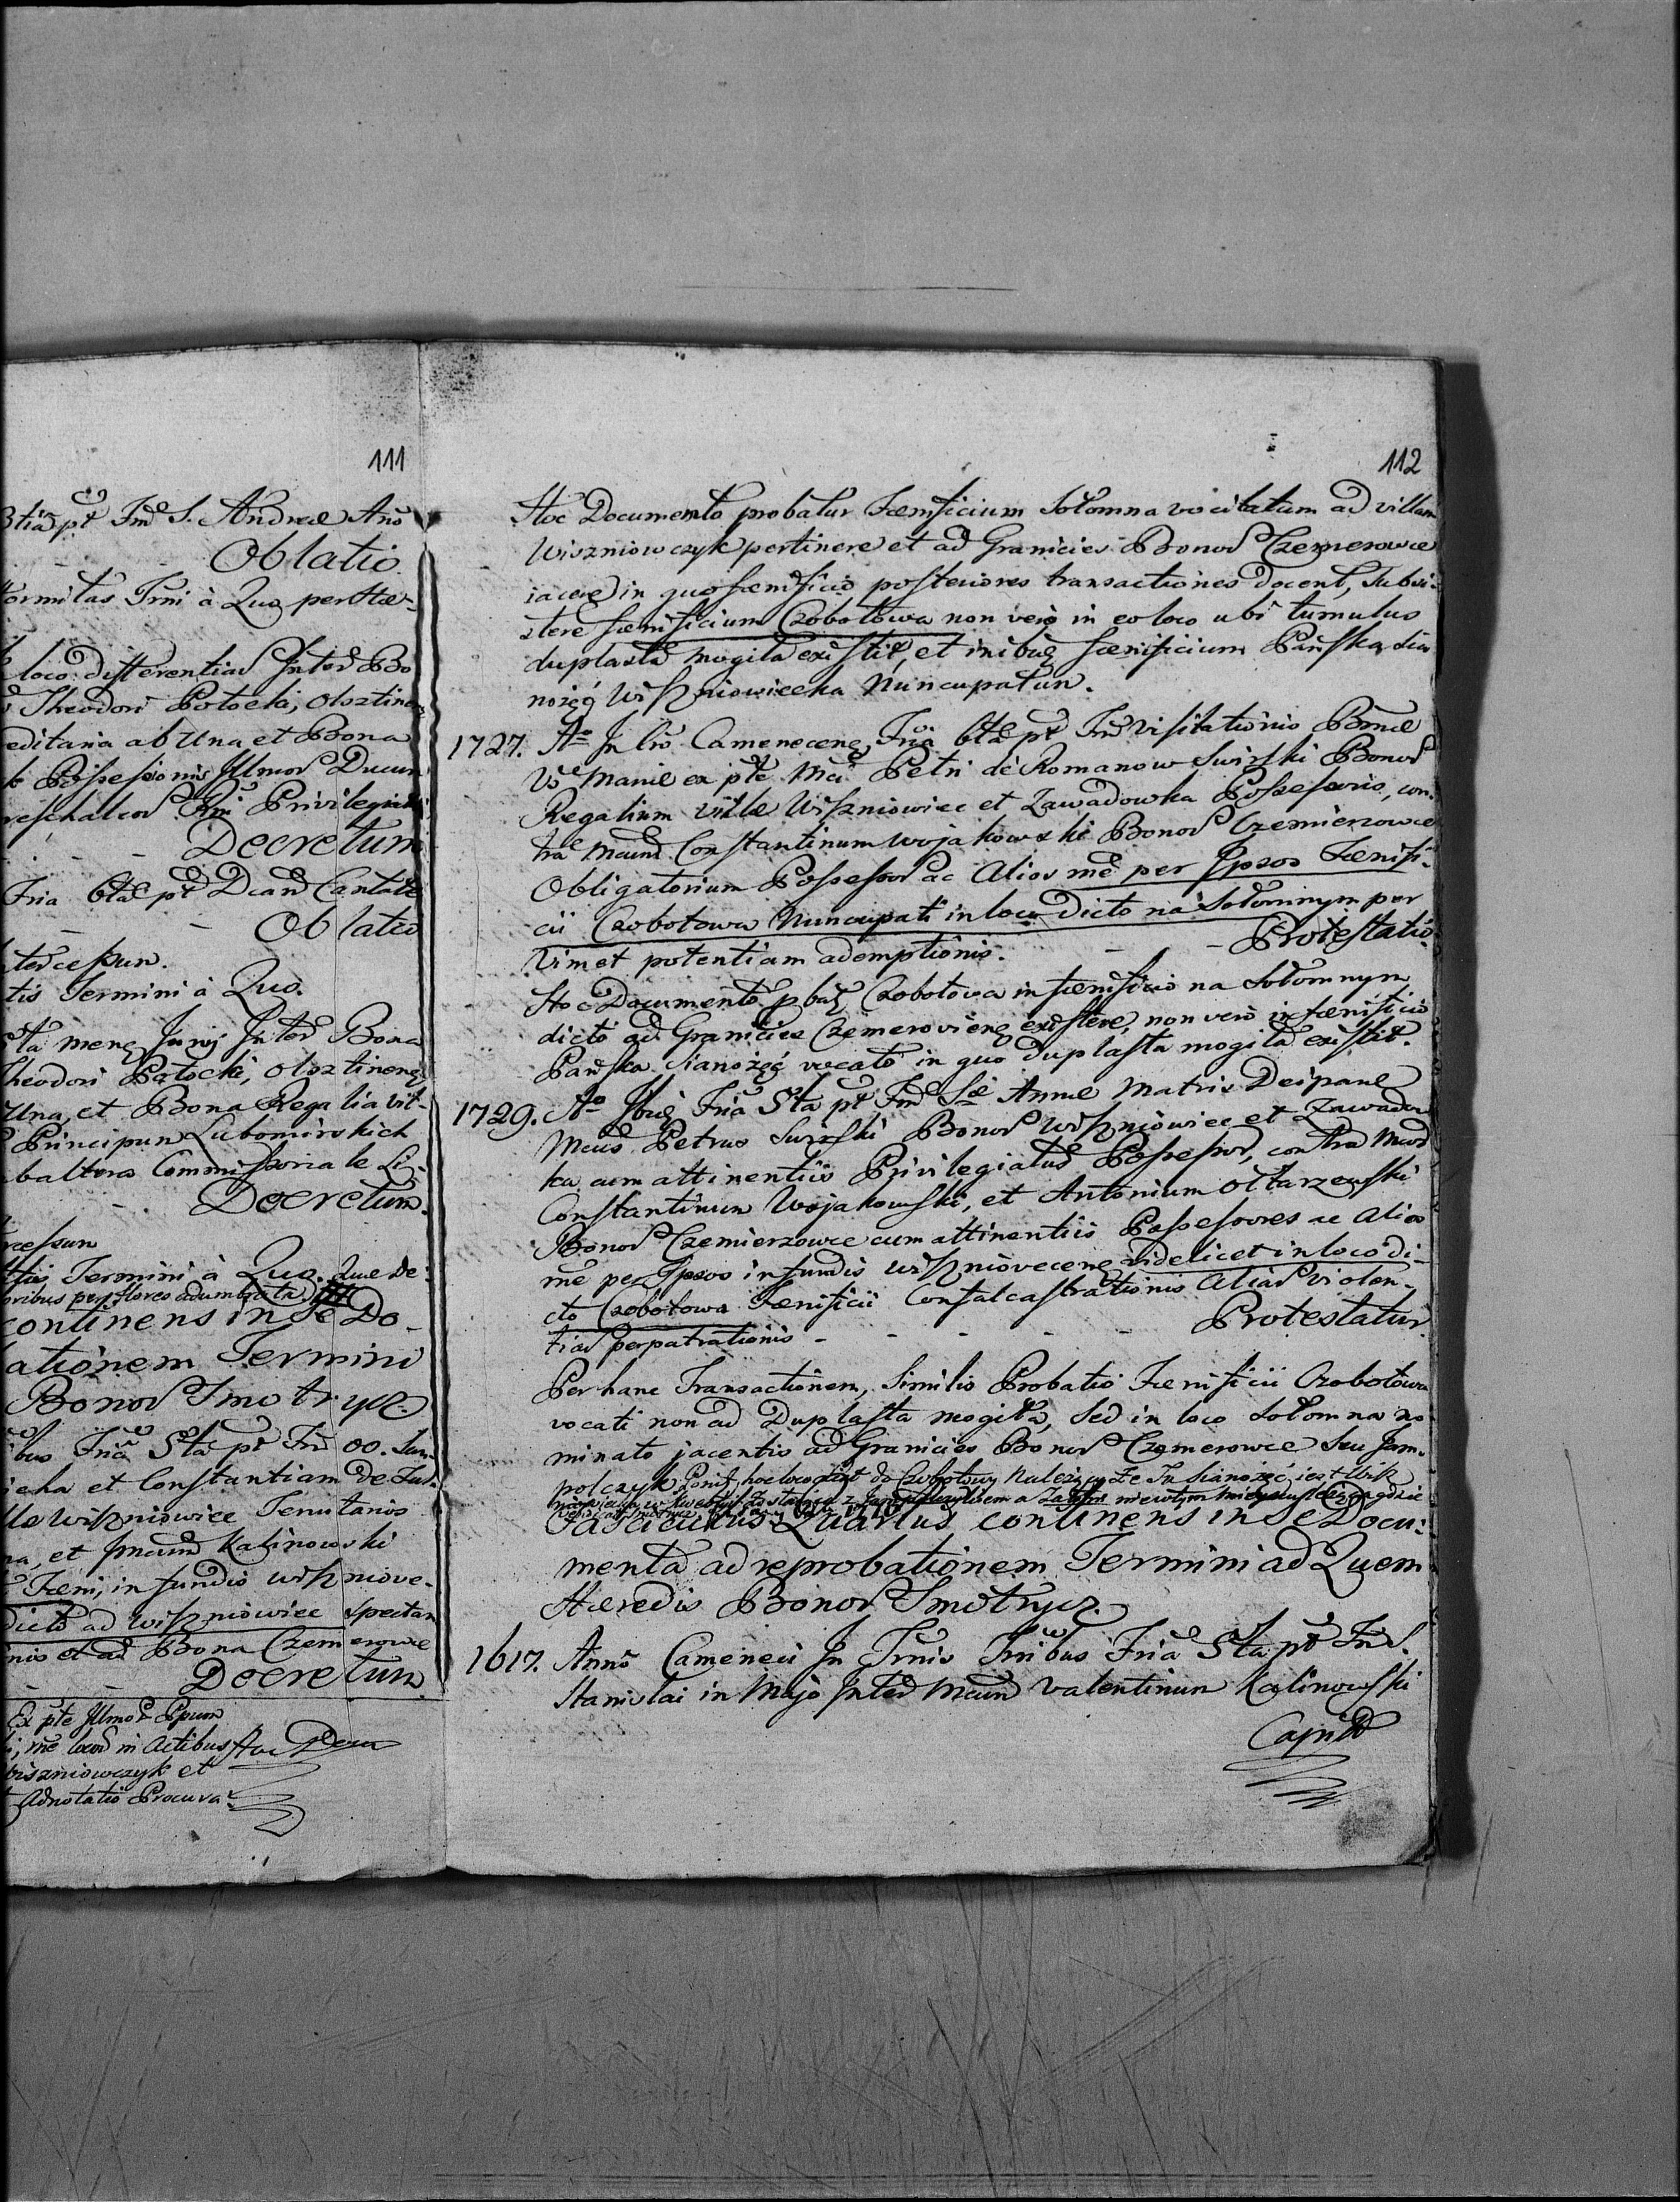 111
3tia pt Fm̃ S. Andreæ Anō
Oblatio
formitas Trni à Quo per Hæ-
loco differentias Inter Bo
Theodori Potocki, Olsztinen
editaria ab Una et Bona
Possessionis Illmor Ducum
reschalcor Rni Privilegia
Decretum
Fria 6ta pt Dcam Cantate
Oblatio
tercessun.
tis Termini à Quo.
Sta mens Junij Inter Bona
Theodori Potocki, Olsztinens
Una, et Bona Regalia vil-
Principum Lubomirskich
baltera Commissoriale Li-
Decretum.
rcessun
tis Termini à Quo. Quæ De-
oribus per flores adumbrata
continens in se Do-
ationem Termini
Bonor Smotrycz
bus Fria Sta pt Fm̃ OO. San
icka et Constantiam De Lus
lla Wiszniowiec Tenutarios
na, et Mcum Kalinowski
Fæni, in fundis Wiszniove-
dicto ad Wiszniowiec Spectan
nis et ad Bona Czemerowce
Decretum
Ex pte Illmor Epum
i, me locor in Actibus Hoc Docu
Wiszniowczyk et
Adnotatio Procura-
112
Hoc Documento probatur Fænisicium Sołomna vocitatum ad villam
Wiszniowczyk pertinere et ad Granicies Bonor Czemerowce
iacere in quo fænisicio posteriores transactiones docent, Subsi-
stere fænisicium Czobotowa non vero in eo loco ubi tumulus
duplasta mogiła existit, et inibi fænisicium Pańska Sia
nożęć Wiszniowiecka Nuncupatur.
1727. Ao In Cro Camenecens, Fria 6ta pt Fm̃ Visitationis Bmæ
Vs Mariæ ex pte Mci Petri de Romanow Swirski Bonor
Regalium Villæ Wiszniowiec et Zawadowka Possessoris, con-
tra Mcum Constantinum Wojakowski Bonor Czemierzowce
Obligatorium Possessor ac Alios me per Ipsos Fænisi-
cii Czobotowa Nuncupati in loco Dicto na Sołomnym per
Vim et potentiam ademptionis. - - Protestatio
Hoc Documento pbatr Czobotowa in fænisicio na Sołomnym
dicto ad Granicies Czemeroviens existere, non vero in fænisicio
Pańska Sianożęć vocato in quo Duplasta mogiła existit.
1729. Ao Ibid Fria Sta pt Fm̃ Sæ Annæ Matris Deiparæ
Mcus Petrus Swirski Bonor Wiszniowiec et Zawadow
ka cum attinentiis Privilegiatus Possessor, contra Mcos
Constantinum Wojakowski, et Antonium Ołtarzewski
Bonor Czemierzowce cum attinentiis Possessores ac Alios
me per Ipsos in fundis Wiszniovecens videlicet in loco di-
cto Czobotowa Fænisicii Confalcastrationis Aliàs violen-
tiar perpatrationis - - - - Protestatur
Per hanc Transactionem, Similis Probatio Fænisicii Czobotowa
vocati non ad Duplasta mogiła, Sed in loco Sołomna no-
minato jacentis ad Granicies Bonor Czemerowce Seu Jam-
polczyk Ponit hoc loco do Czobotowy Należący że Ta Sianożęć iest Wisz
niowiecka w kwestyi z Jampolczykiem a
Fasciculus Quartus continens in se Docu-
menta ad reprobationem Termini ad Quem
Hæredis Bonor Smotrycz.
1617. Anno Camenecii In Trnis Trribus Fria Sta pt Fm̃ S.
Stanislai in Majo Inter Mcum Valentinum Kalinowski
Capid